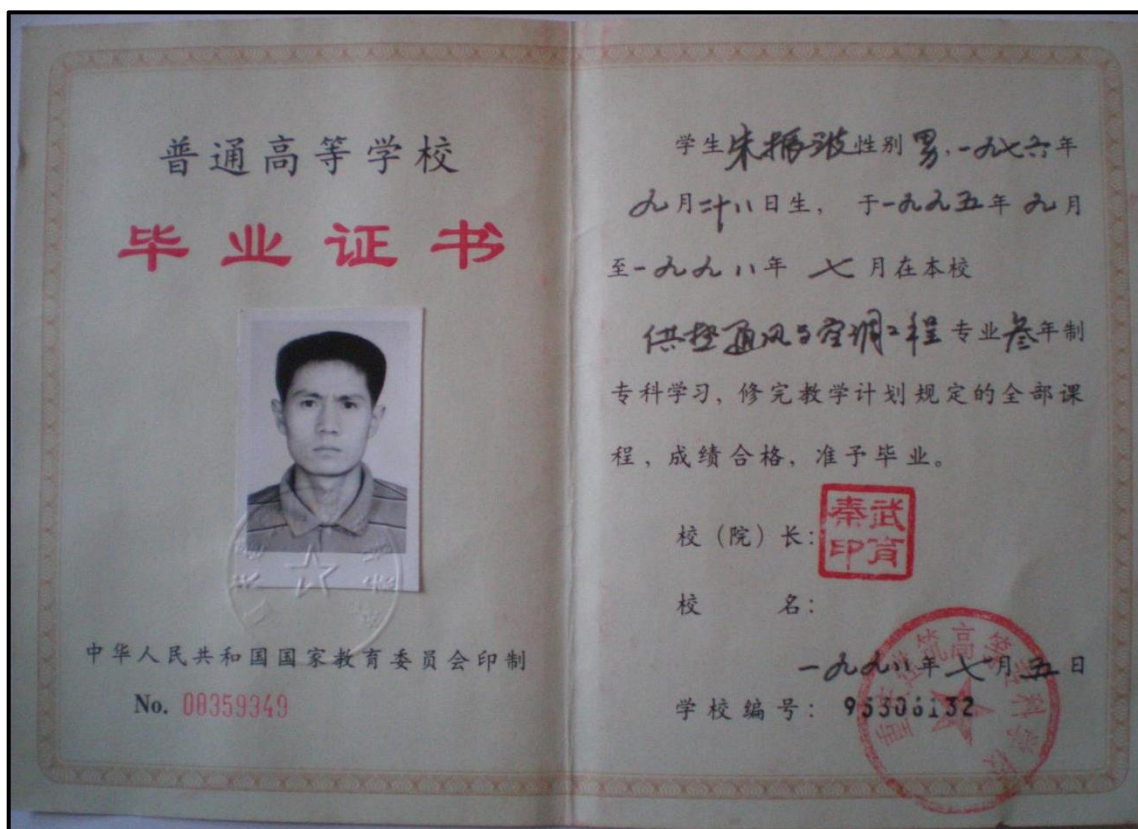 普通高等学校
毕业证书
中华人民共和国国家教育委员会印制
No. 00359349
学生朱振波性别男,一九七六年
九月二十八日生, 于一九九五年九月
至一九九八年 七月在本校
供热通风与空调工程专业叁年制
专科学习, 修完教学计划规定的全部课
程, 成绩合格, 准予毕业。
校(院)长:
武育秦印
校 名:
一九九八年七月五日
学校编号:
建筑高等专科学校